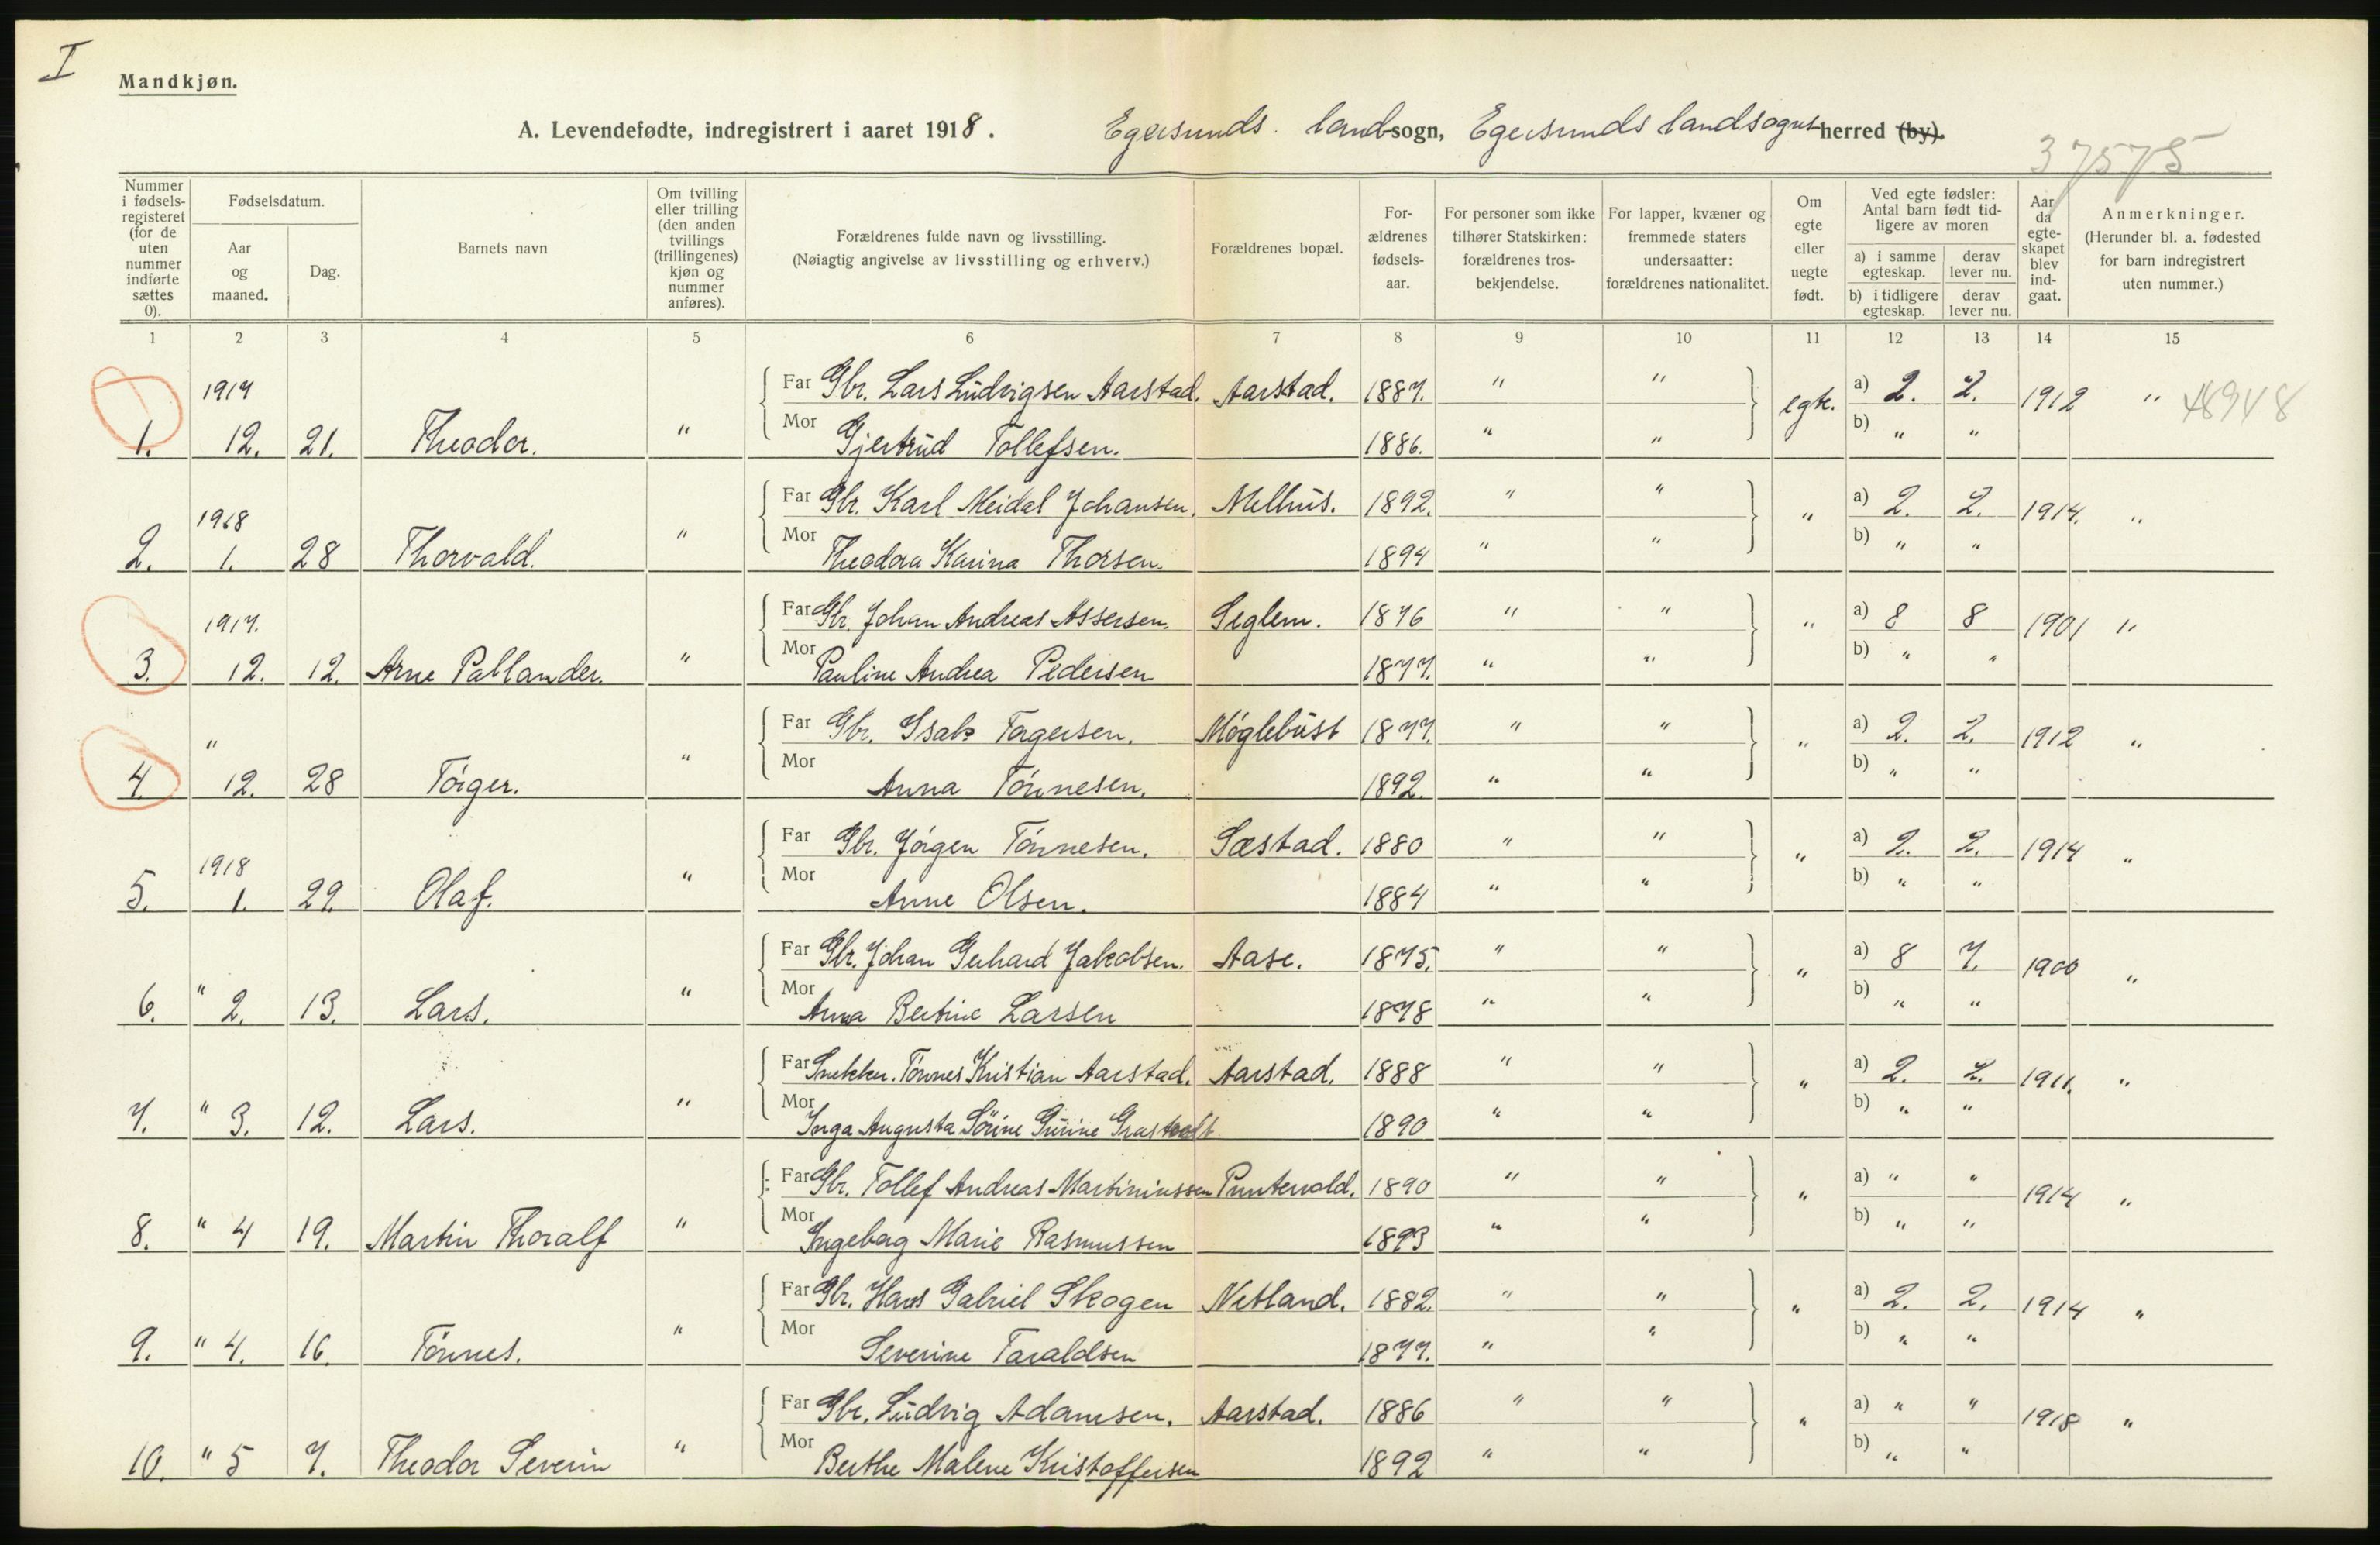 I
Mandkjøn.
A. Levendefødte, indregistrert i aaret 1918. Egersunds landsogn, Egersunds landsogns herred (by).
37575
Nummer i fødselsregisteret (for de uten nummer indførte sættes 0).
Fødselsdatum.
Aar og maaned.
Dag.
Barnets navn
Om tvilling eller trilling (den anden tvillings (trillingenes) kjøn og nummer anføres).
Forældrenes fulde navn og livsstilling.
(Nøiagtig angivelse av livsstilling og erhverv.)
Forældrenes bopæl.
Forældrenes fødselsaar.
For personer som ikke tilhører Statskirken: forældrenes trosbekjendelse.
For lapper, kvæner og fremmede staters undersaatter: forældrenes nationalitet.
Om egte eller uegte født.
Ved egte fødsler: Antal barn født tidligere av moren
a) i samme egteskap.
derav lever nu.
b) i tidligere egteskap.
derav lever nu.
Aar da egteskapet blev indgaat.
Anmerkninger.
(Herunder bl. a. fødested for barn indregistrert uten nummer.)
1 2 3 4 5 6 7 8 9 10 11 12 13 14 15
1917 Far Gbr. Lars Ludvigsen Aarstad. Aarstad. 1887. " " egte. a) 2. 2. 1912 " 48948
1. 12. 21. Theodor. " Mor Gjertrud Tollefsen. 1886. " " b) " "
1918 Far Gbr. Karl Meidal Johansen. Melhus. 1892. " " " a) 2. 2. 1914. "
2. 1. 28 Thorvald. " Mor Theodora Karina Thorsen. 1894 " " b) " "
1917. Far Gbr. Johan Andreas Assersen. Seglem. 1876 " " " a) 8 8 1901 "
3. 12. 12. Arne Pallander. " Mor Pauline Andrea Pedersen 1877. " " b) " "
" Far Gbr. Isak Torgersen. Møglebust 1877. " " " a) 2. 2. 1912 "
4. 12. 28 Torger. " Mor Anna Tønnesen. 1892. " " b) " "
1918 Far Gbr. Jørgen Tønnesen. Sæstad. 1880 " " " a) 2. 2. 1914 "
5. 1. 29. Olaf. " Mor Anne Olsen. 1884 " " b) " "
Far Gbr. Johan Gerhard Jakobsen. Aase. 1875. " " " a) 8 7. 1900 "
6. " 2. 13. Lars. " Mor Anna Bertine Larsen 1878 " " b) " "
Far Snekker. Tønnes Kristian Aarstad. Aarstad. 1888 " " " a) 2. 2. 1911. "
7. " 3. 12. Lars. " Mor Inga Augusta Sørine Gurine 1890 " " b) " "
Far Gbr. Tollef Andreas Martiniussen Puntervold. 1890 " " " a) " " 1914 "
8. " 4 19. Martin Thoralf " Mor Ingeborg Marie Rasmussen 1893 " " b) " "
Far Gbr. Hans Gabriel Skogen Netland. 1882. " " " a) 2. 2. 1914 "
9. " 4. 16. Tønnes. " Mor Severine Taraldsen 1877. " " b) " "
Far Gbr. Ludvig Adamsen. Aarstad. 1886 " " " a) " " 1918 "
10. " 5 7. Theodor Severin " Mor Berthe Malene Kristoffersen 1892 " " b) " "